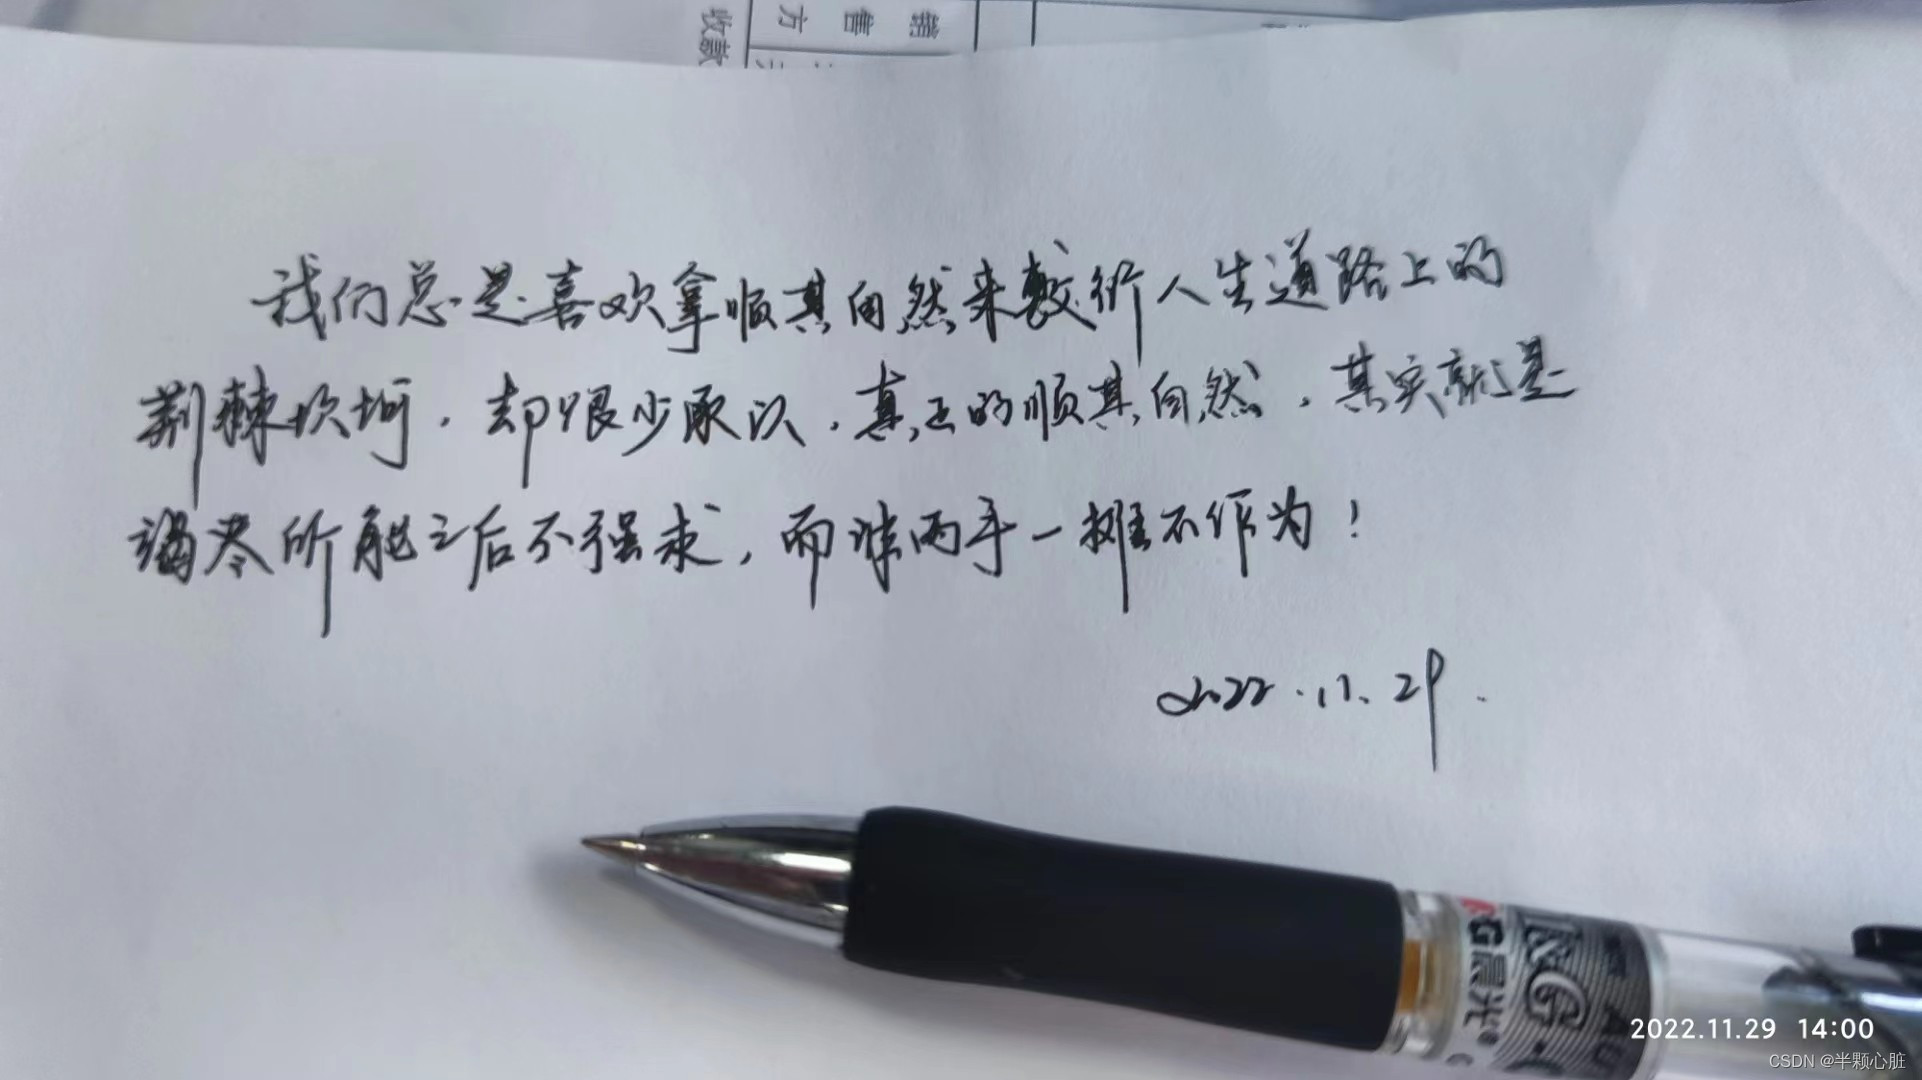 销售方
收款
我们总是喜欢拿顺其自然来敷衍人生道路上的
荆棘坎坷，却很少承认，真正的顺其自然，其实就是
竭尽所能之后不强求，而非两手一摊不作为！
2022.11.29.
M&G晨光
2022.11.29 14:00
CSDN @半颗心脏